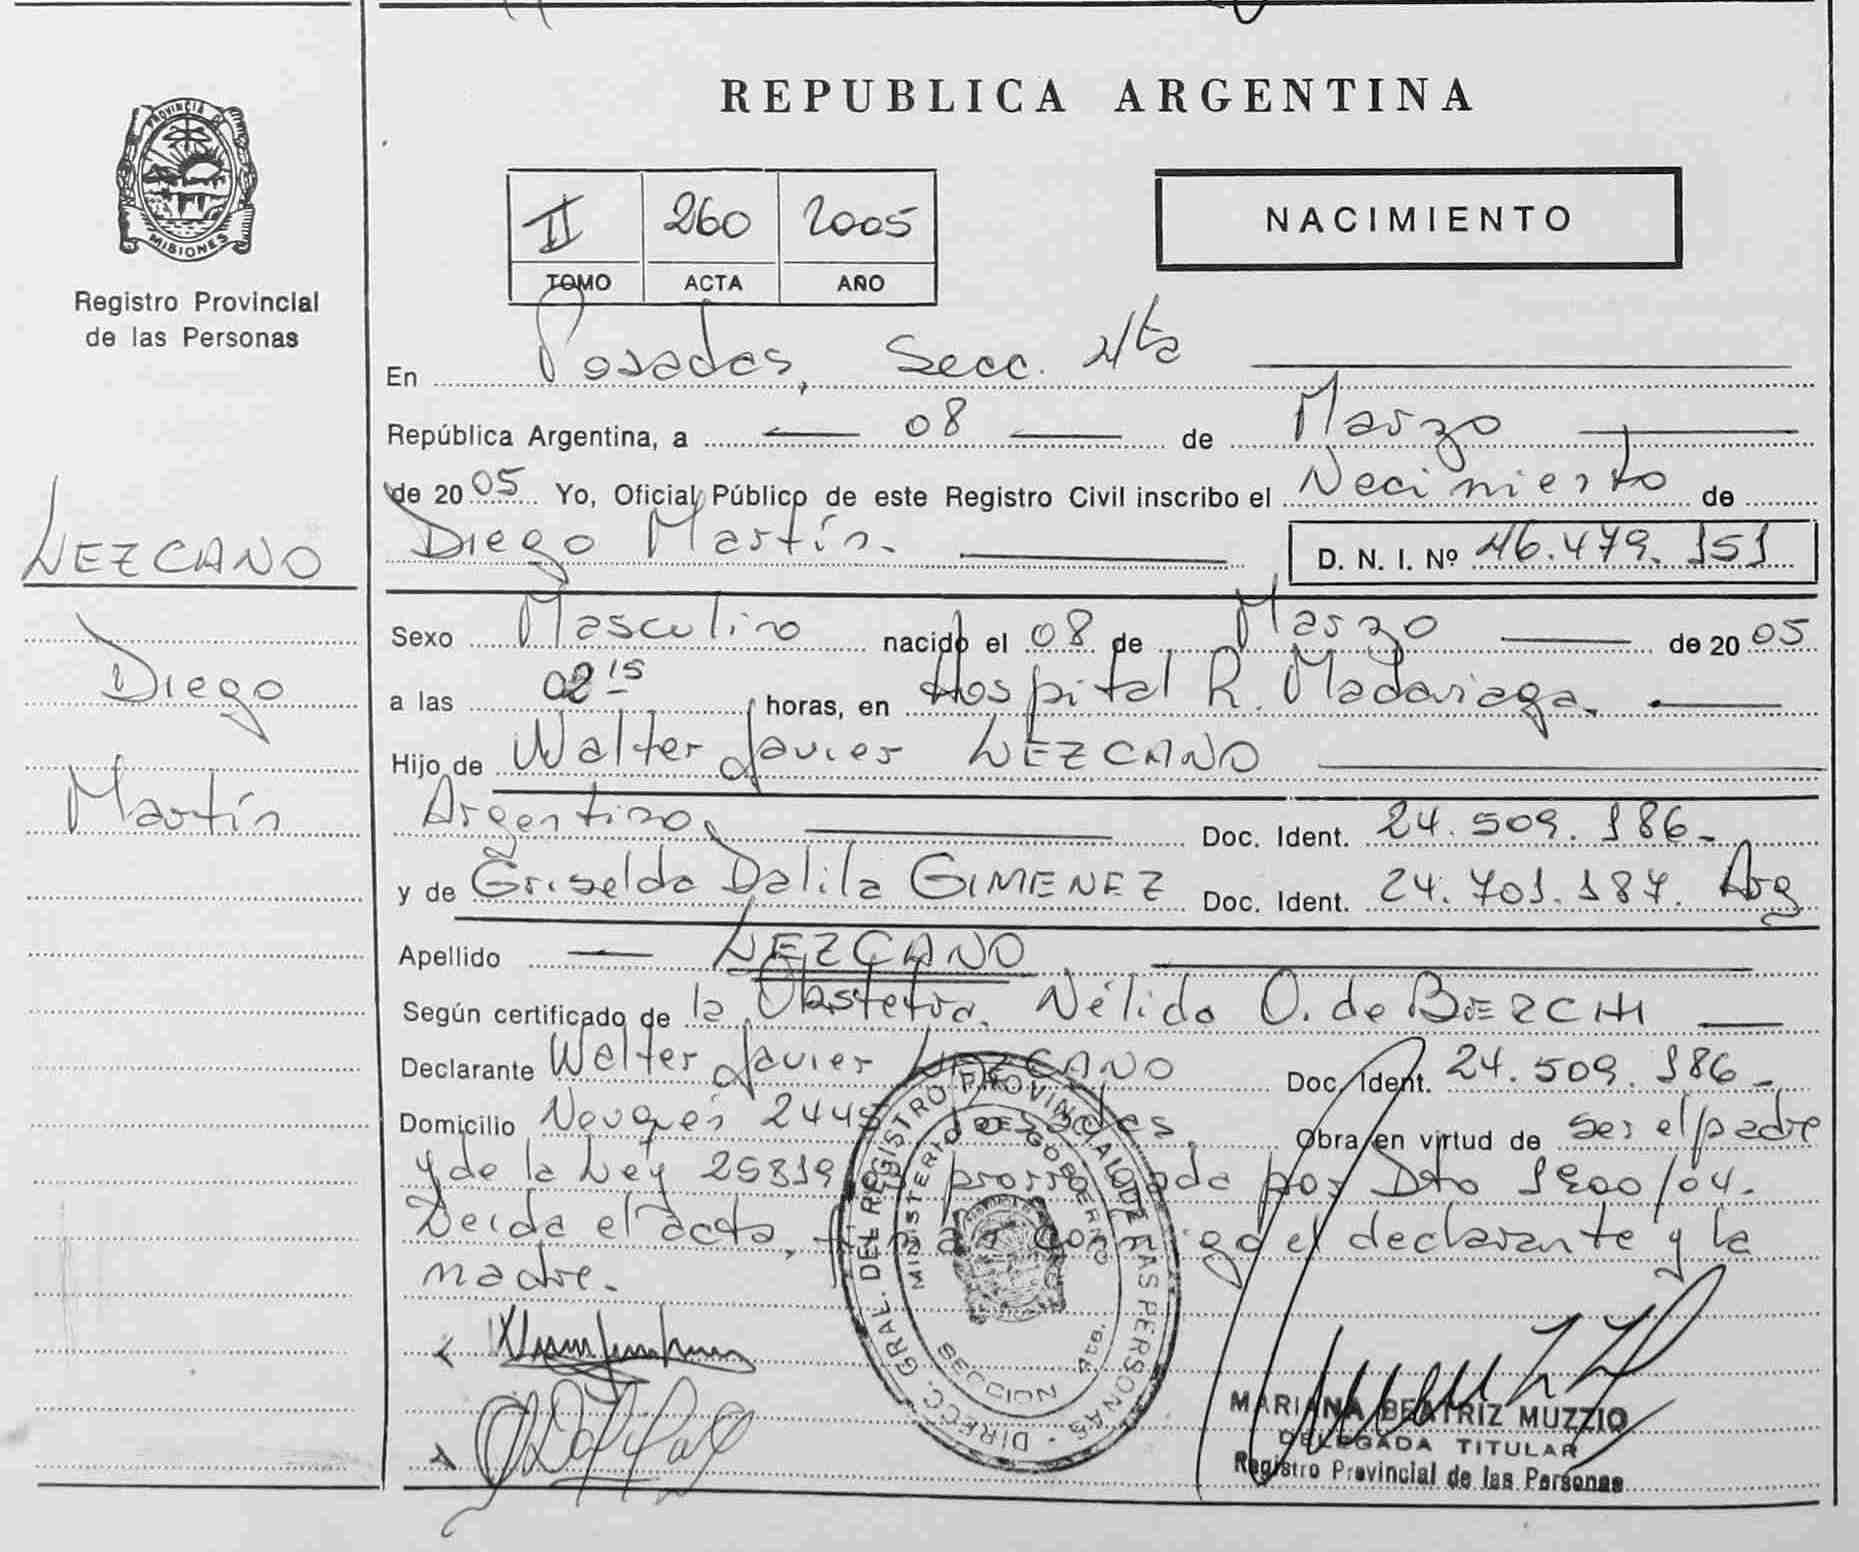 REPUBLICA ARGENTINA
PROVINCIA DE
MISIONES
Registro Provincial
de las Personas
NACIMIENTO
II 260 2005
TOMO ACTA AÑO
En Posadas, Secc. 4ta
República Argentina, a 08 de Marzo
de 2005 Yo, Oficial Público de este Registro Civil inscribo el Nacimiento de
LEZCANO
Diego Martín. D. N. I. Nº 46.479.151
Sexo Masculino nacido el 08 de Marzo de 2005
Diego
a las 02 15 horas, en Hospital R. Madariaga.
Hijo de Walter Javier LEZCANO
Martín
Argentino, Doc. Ident. 24.509.186-
y de Griselda Dalila GIMENEZ Doc. Ident. 24.701.187. Arg
Apellido LEZCANO
Según certificado de la Obstetra. Nélida O. de
Declarante Walter Javier LEZCANO Doc. Ident. 24.509.186-
Domicilio 2445 Posadas. Obra en virtud de ser el padre
y de la Ley 25819 prorrogada por Dto 1900/04.
Leida el acta, firman conmigo el declarante y la
madre.
DIRECC. GRAL. DEL REGISTRO PROVINCIAL DE LAS PERSONAS
MINISTERIO DE GOBIERNO
SECCION 4ta.
MARIANA BEATRIZ MUZZIO
DELEGADA TITULAR
Registro Provincial de las Personas